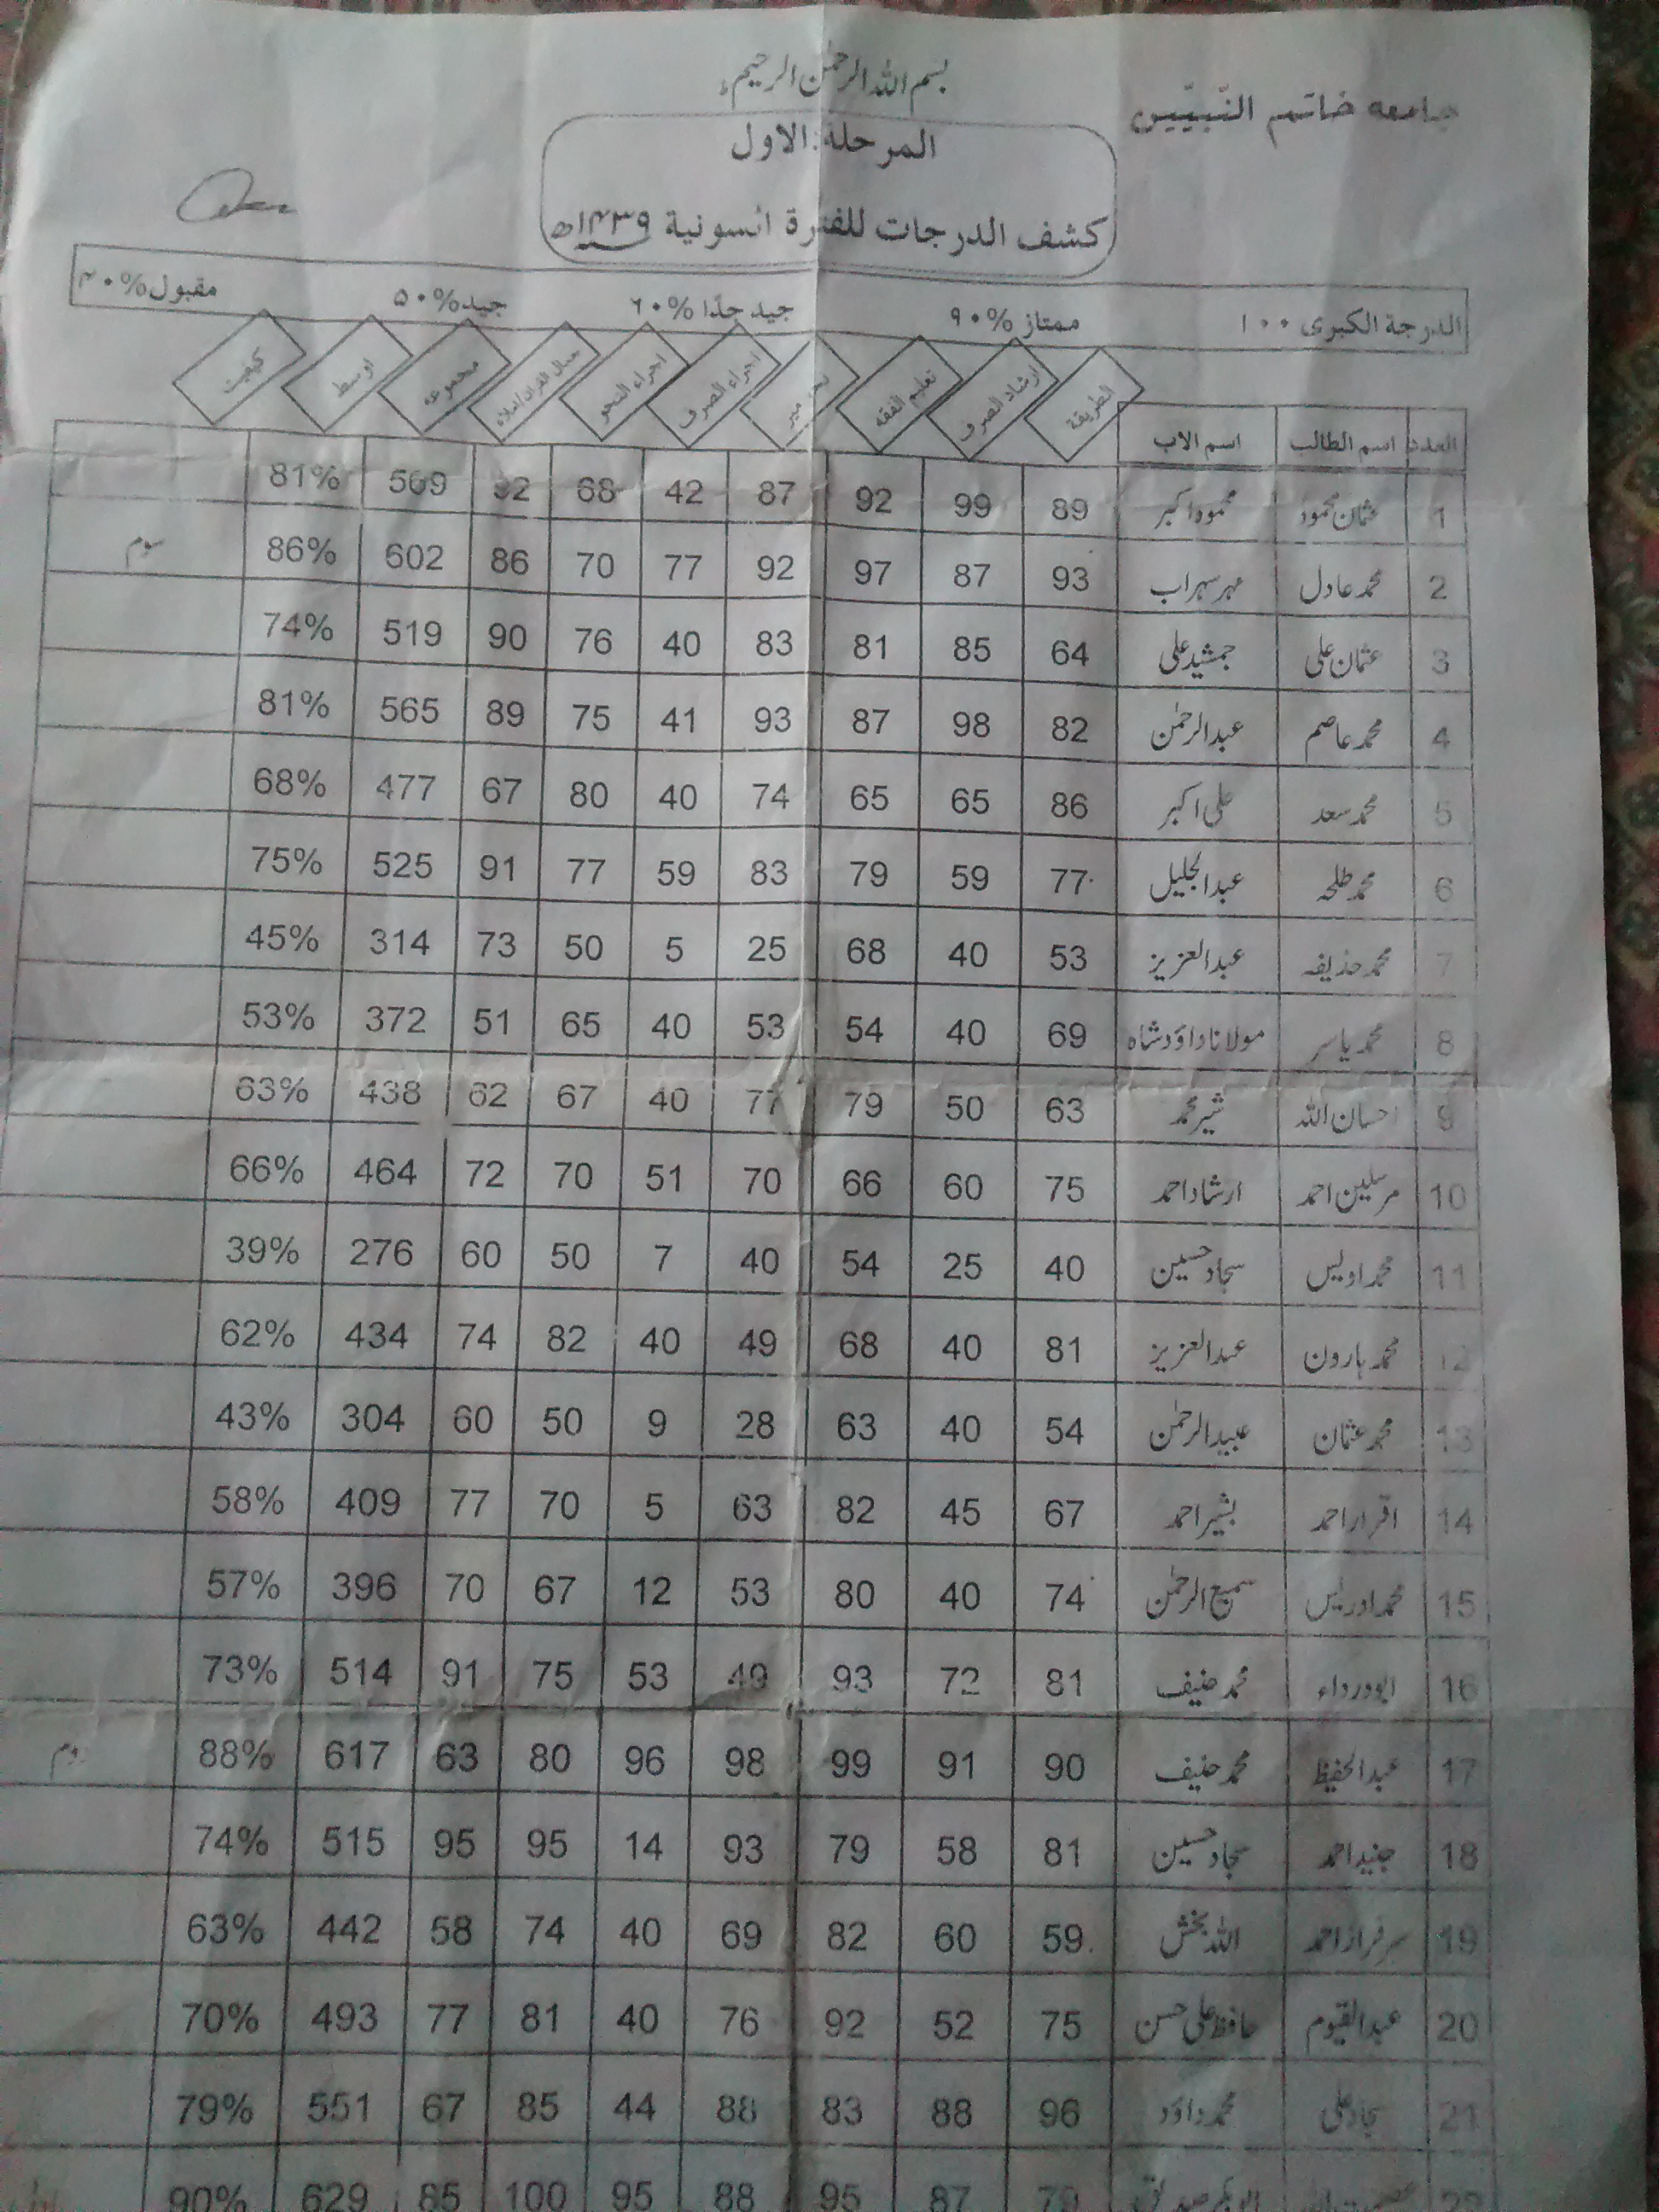 بسم الله الرحمٰن الرحيم
جامعه خاتم النّبيّين
المرحلة: الاول
كشف الدرجات للفترة السنوية ١٤٣٩ھ
الدرجة الكبرى ١٠٠ ممتاز %٩٠ جيد جدًا %٦٠ جيد %٥٠ مقبول %٤٠
العدد اسم الطالب اسم الاب الطريقة ارشاد الصرف تعليم الفقه نحو مير اجراء الصرف اجراء النحو جمال القرآن/املاء مجموعہ اوسط کیفیت
1 عثمان محمود محمود اکبر 89 99 92 87 42 68 92 569 81%
2 محمد عادل مہر سہراب 93 87 97 92 77 70 86 602 86% سوم
3 عثمان علی جمشید علی 64 85 81 83 40 76 90 519 74%
4 محمد عاصم عبدالرحمٰن 82 98 87 93 41 75 89 565 81%
5 محمد سعد علی اکبر 86 65 65 74 40 80 67 477 68%
6 محمد طلحہ عبدالجلیل 77 59 79 83 59 77 91 525 75%
7 محمد حذیفہ عبدالعزیز 53 40 68 25 5 50 73 314 45%
8 محمد یاسر مولانا داؤد شاہ 69 40 54 53 40 65 51 372 53%
9 احسان اللہ شیر محمد 63 50 79 77 40 67 62 438 63%
10 مرسلین احمد ارشاد احمد 75 60 66 70 51 70 72 464 66%
11 محمد اویس سجاد حسین 40 25 54 40 7 50 60 276 39%
12 محمد ہارون عبدالعزیز 81 40 68 49 40 82 74 434 62%
13 محمد عثمان عبیدالرحمٰن 54 40 63 28 9 50 60 304 43%
14 اقرار احمد بشیر احمد 67 45 82 63 5 70 77 409 58%
15 محمد ادریس سمیع الرحمٰن 74 40 80 53 12 67 70 396 57%
16 ابودرداء محمد حنیف 81 72 93 49 53 75 91 514 73%
17 عبدالحفیظ محمد حنیف 90 91 99 98 96 80 63 617 88% دوم
18 جنید احمد سجاد حسین 81 58 79 93 14 95 95 515 74%
19 سرفراز احمد اللہ بخش 59 60 82 69 40 74 58 442 63%
20 عبدالقیوم حافظ علی حسن 75 52 92 76 40 81 77 493 70%
21 سجاد علی محمد داؤد 96 88 83 88 44 85 67 551 79%
22 ابوبکر صدیق 79 87 95 88 95 100 85 629 90%